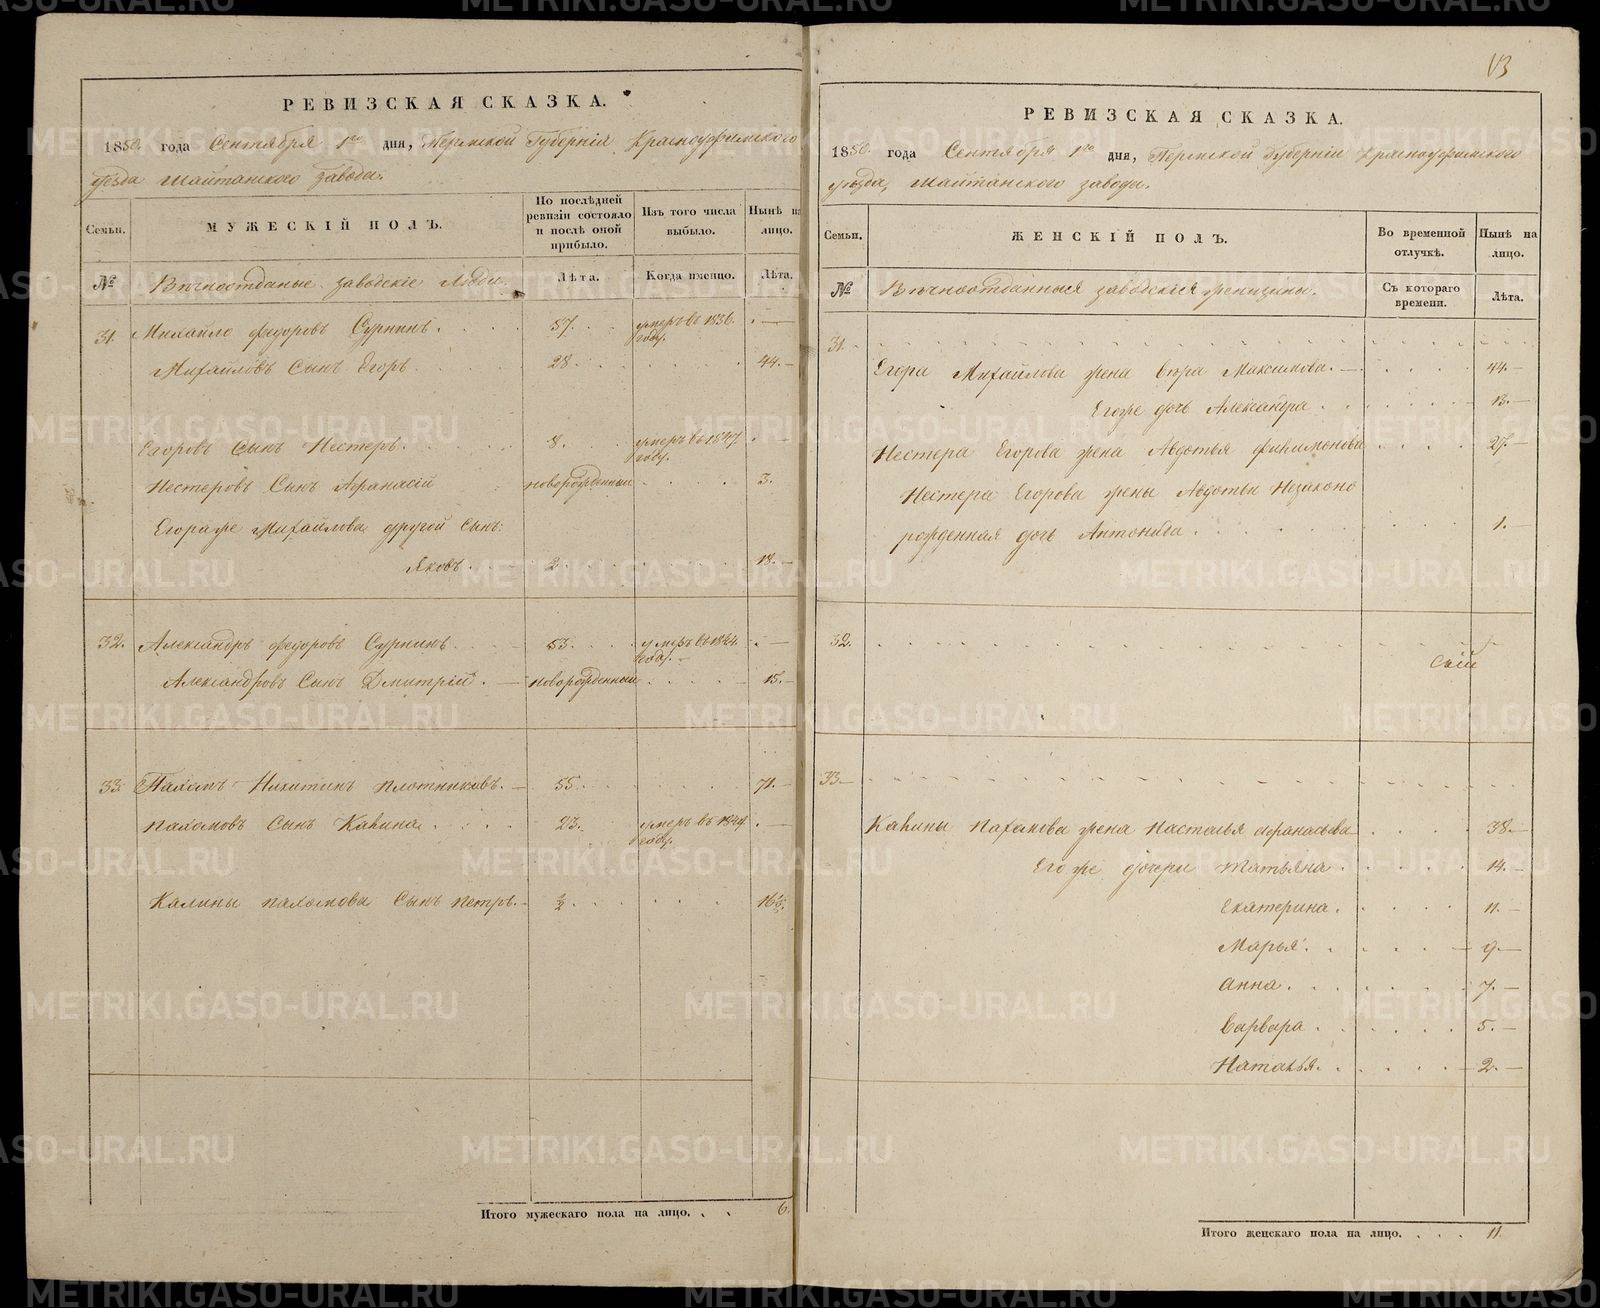 РЕВИЗСКАЯ СКАЗКА.
1850 года Сентября 1го дня, Пермской Губерніи Красноуфимского
уезда Шайтанского завода.
Семьи.
МУЖЕСКІЙ ПОЛЪ.
По послѣдней ревизіи состояло и послѣ оной прибыло.
Изъ того числа выбыло.
Нынѣ на лицо.
№
Вѣчноотданые заводскіе Люди.
Лѣта.
Когда именно.
Лѣта.
31. Михайло Федоровъ Сурнинъ. 57. умеръ въ 1836 году. —
Михайловъ Сынъ Егоръ 28 44.—
Егоровъ Сынъ Нестеръ. 8. умеръ въ 1847 году. —
Нестеровъ Сынъ Афанасій новорожденный 3.
Егора же Михайлова другой сынъ:
Яковъ. 2. 18.—
32. Александръ Федоровъ Сурнинъ. 53. умеръ въ 1844 году. —
Александровъ Сынъ Дмитрій. — новорожденный 15.—
33. Пахомъ Никитинъ Плотниковъ. — 55. 71.—
Пахомовъ Сынъ Калина. 23. умеръ въ 1849 году. —
Калины Пахомова Сынъ Петръ.— ½ 16½
Итого мужескаго пола на лицо. 6.
РЕВИЗСКАЯ СКАЗКА.
1850 года Сентября 1го дня, Пермской Губерніи Красноуфимского
уѣзда, Шайтанского завода.
Семьи.
ЖЕНСКІЙ ПОЛЪ.
Во временной отлучкѣ.
Нынѣ на лицо.
№
Вѣчноотданныя заводскія женщины.
Съ котораго времени.
Лѣта.
31.
Егора Михайлова жена Вѣра Максимова.— 44.—
Егоже дочь Александра 13.—
Нестера Егорова жена Авдотья Филимонова 27.—
Нестера Егорова жены Авдотьи Незаконо
рожденная дочь Антонида 1.—
32.
33.—
Калины Пахомова жена Настасья Афанасьева 38.—
Его же дочери Татьяна 14.—
Екатерина. 11.—
Марья. 9.—
Анна. 7.—
Варвара 5.—
Наталья. 2.—
Итого женскаго пола на лицо. 11.
METRIKI.GASO-URAL.RU